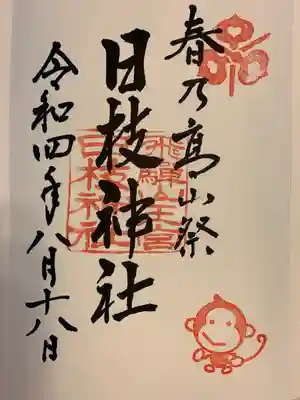 春乃高山祭
日枝神社
飛騨生宮
日枝神社
令和四年八月十八日